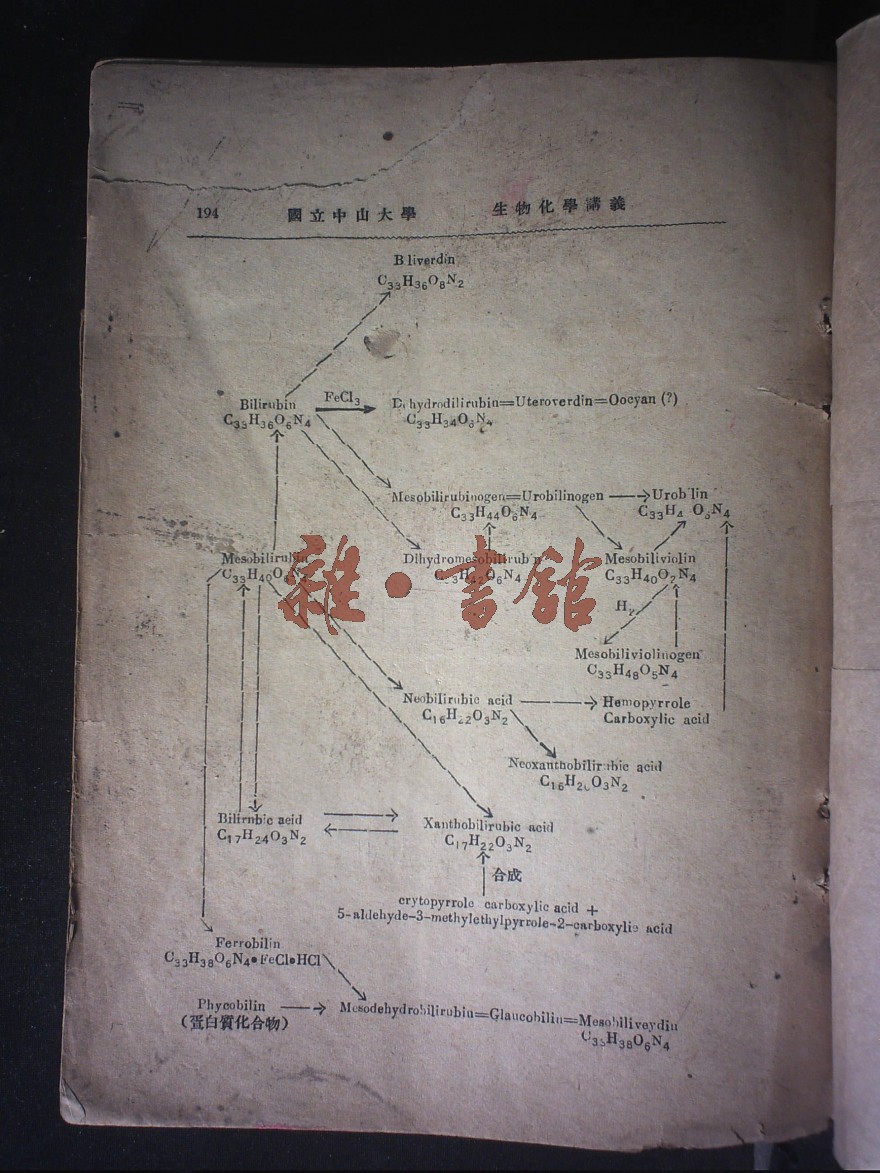 194 國立中山大學 生物化學講義
B liverdin
C33H36O8N2
Bilirubin
C33H36O6N4
FeCl3
Dihydrodilirubin=Uteroverdin=Oocyan (?)
C33H34O6N4
Mesobilirubinogen=Urobilinogen
C33H44O6N4
Urob lin
C33H4 O6N4
Mesobilirubin
C33H40O6N4
Dihydromesobilirub n
C33H42O6N4
Mesobiliviolin
C33H40O7N4
H2
Mesobiliviolinogen
C33H48O5N4
Neobilirubic acid
C16H22O3N2
Hemopyrrole
Carboxylic acid
Neoxanthobilirubic acid
C16H20O3N2
Bilirubic acid
C17H24O3N2
Xanthobilirubic acid
C17H22O3N2
合成
crytopyrrole carboxylic acid +
5-aldehyde-3-methylethylpyrrole-2-carboxylic acid
Ferrobilin
C33H38O6N4•FeCl•HCl
Phycobilin
(蛋白質化合物)
Mesodehydrobilirubin=Glaucobilin=Mesobiliveydin
C33H38O6N4
雜•書館